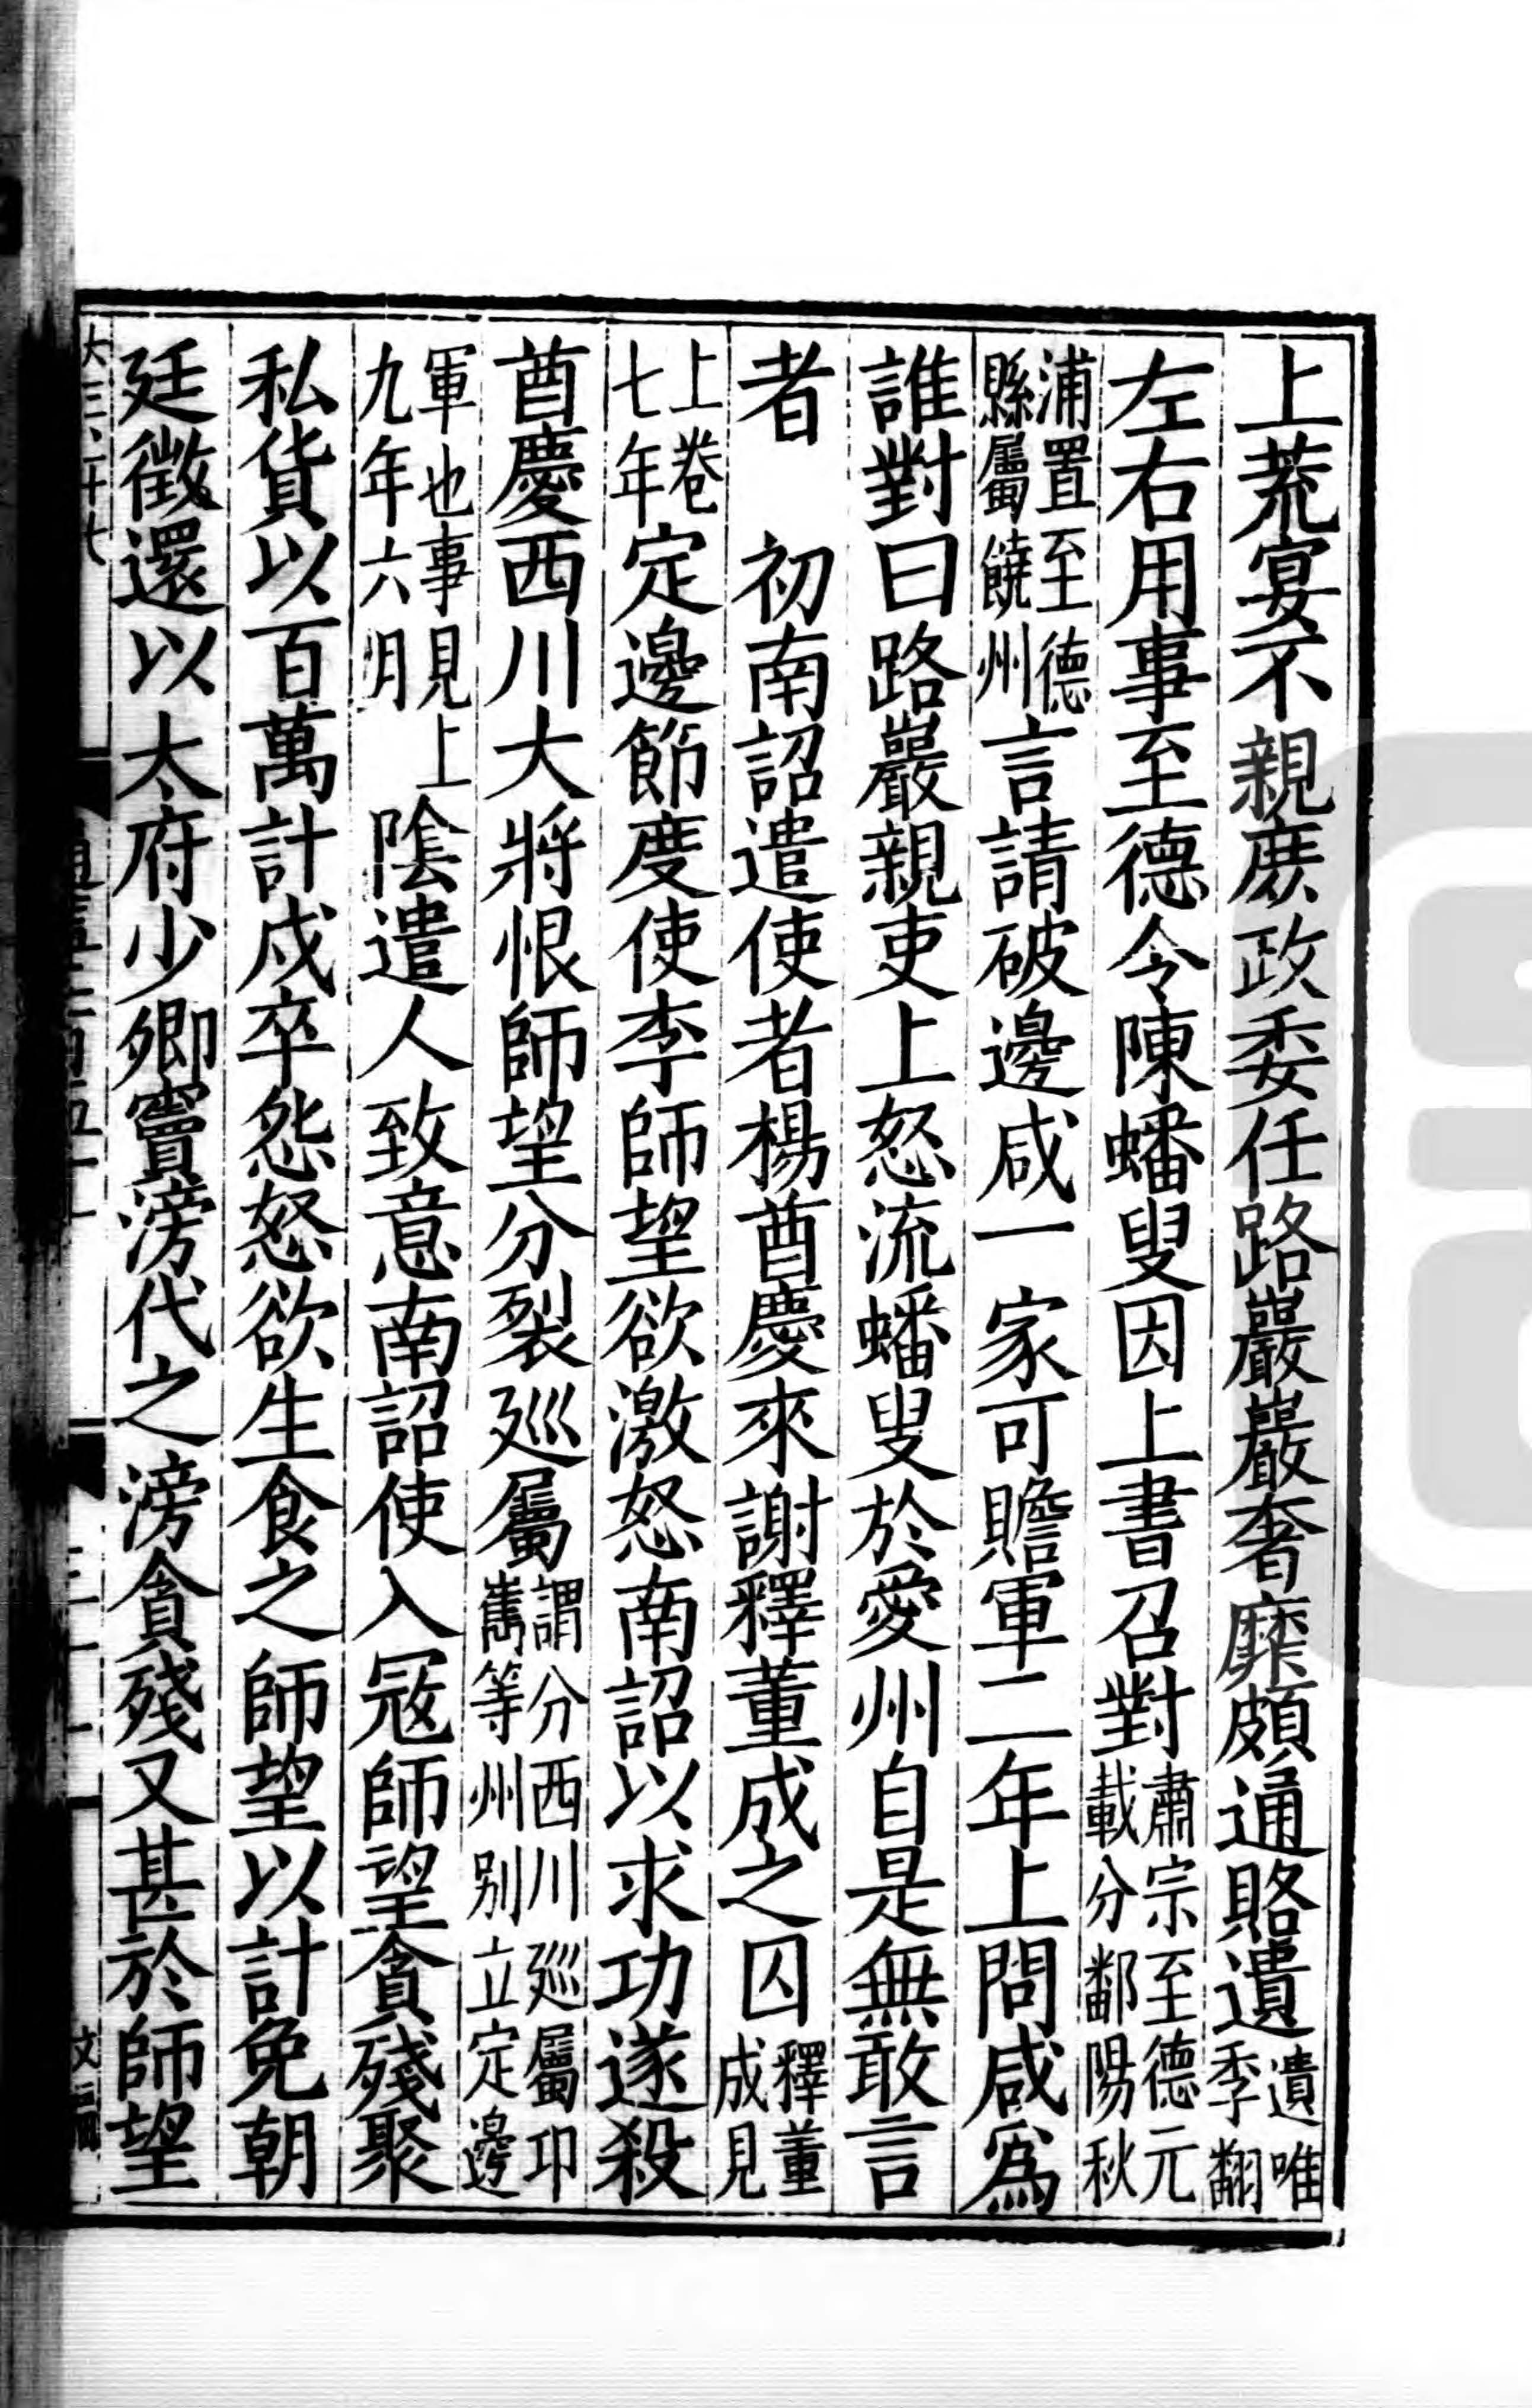 上荒宴不親庻政委任路巖巖奢靡頗通賂遺遺唯季翻
左右用事至德令陳蟠叟因上書召對肅宗至德元載分鄱陽秋
浦置至德縣屬饒州言請破邊咸一家可贍軍二年上問咸爲
誰對曰路巖親吏上怒流蟠叟於愛州自是無敢言
者 初南詔遣使者楊酋慶來謝釋董成之囚釋董成見
上卷七年定邊節度使李師望欲激怒南詔以求功遂殺
酋慶西川大將恨師望分裂廵屬謂分西川廵屬卭雟等州別立定邊
軍也事見上九年六月陰遣人致意南詔使入冦師望貪殘聚
私貨以百萬計戍卒怨怒欲生食之師望以計免朝
廷徵還以太府少卿竇滂代之滂貪殘又甚於師望